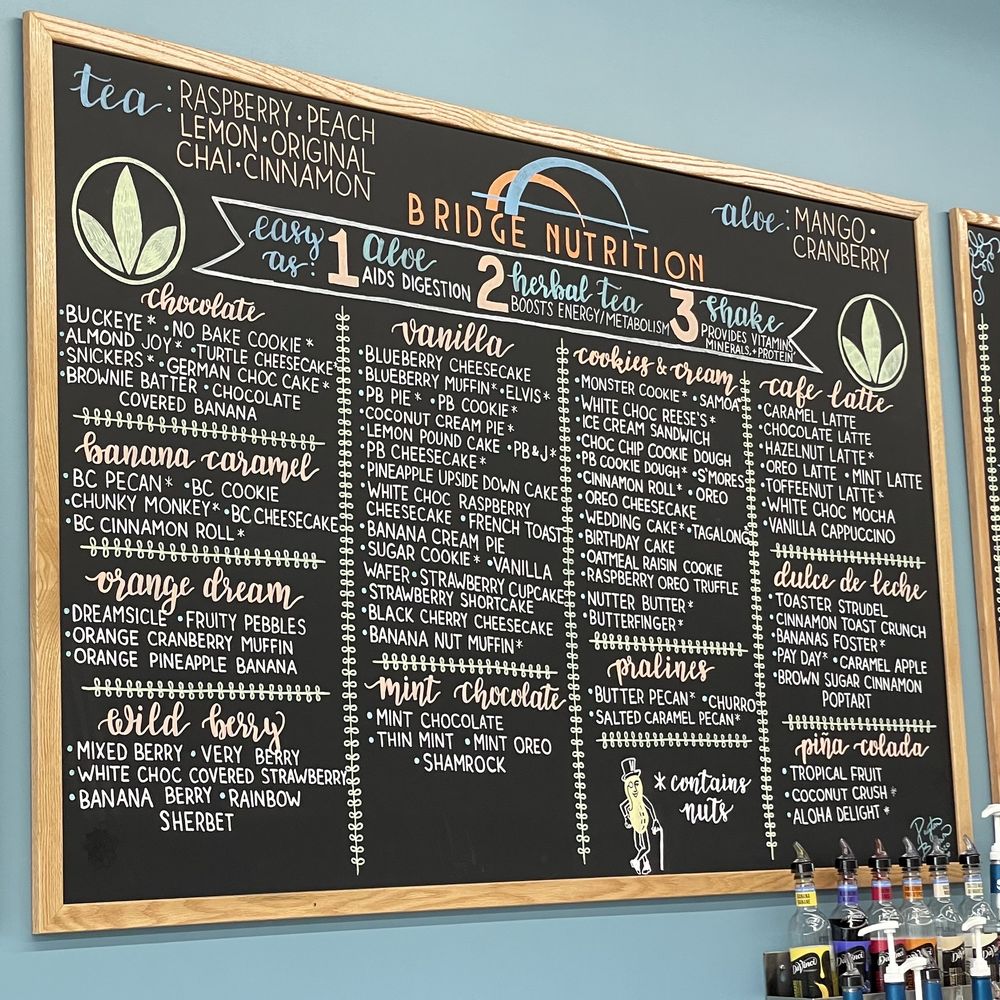 tea: RASPBERRY • PEACH
LEMON • ORIGINAL
CHAI • CINNAMON
BRIDGE NUTRITION
aloe: MANGO •
CRANBERRY
easy as: 1 aloe
AIDS DIGESTION
2 herbal tea
BOOSTS ENERGY/METABOLISM
3 shake
PROVIDES VITAMINS
MINERALS, + PROTEIN
chocolate
• BUCKEYE* • NO BAKE COOKIE*
• ALMOND JOY* • TURTLE CHEESECAKE*
• SNICKERS* • GERMAN CHOC CAKE*
• BROWNIE BATTER • CHOCOLATE
COVERED BANANA
banana caramel
• BC PECAN* • BC COOKIE
• CHUNKY MONKEY* • BC CHEESECAKE
• BC CINNAMON ROLL*
orange dream
• DREAMSICLE • FRUITY PEBBLES
• ORANGE CRANBERRY MUFFIN
• ORANGE PINEAPPLE BANANA
wild berry
• MIXED BERRY • VERY BERRY
• WHITE CHOC COVERED STRAWBERRY
• BANANA BERRY • RAINBOW
SHERBET
vanilla
• BLUEBERRY CHEESECAKE
• BLUEBERRY MUFFIN* • ELVIS*
• PB PIE* • PB COOKIE*
• COCONUT CREAM PIE*
• LEMON POUND CAKE • PB & J*
• PB CHEESECAKE*
• PINEAPPLE UPSIDE DOWN CAKE
• WHITE CHOC RASPBERRY
CHEESECAKE • FRENCH TOAST
• BANANA CREAM PIE
• SUGAR COOKIE* • VANILLA
WAFER • STRAWBERRY CUPCAKE
• STRAWBERRY SHORTCAKE
• BLACK CHERRY CHEESECAKE
• BANANA NUT MUFFIN*
mint chocolate
• MINT CHOCOLATE
• THIN MINT • MINT OREO
• SHAMROCK
cookies & cream
• MONSTER COOKIE* • SAMOA*
• WHITE CHOC REESE'S*
• ICE CREAM SANDWICH
• CHOC CHIP COOKIE DOUGH
• PB COOKIE DOUGH* • S'MORES
• CINNAMON ROLL* • OREO
• OREO CHEESECAKE
• WEDDING CAKE* • TAGALONG*
• BIRTHDAY CAKE
• OATMEAL RAISIN COOKIE
• RASPBERRY OREO TRUFFLE
• NUTTER BUTTER*
• BUTTERFINGER*
pralines
• BUTTER PECAN* • CHURRO
• SALTED CARAMEL PECAN*
* contains
nuts
cafe latte
• CARAMEL LATTE
• CHOCOLATE LATTE
• HAZELNUT LATTE*
• OREO LATTE • MINT LATTE
• TOFFEENUT LATTE*
• WHITE CHOC MOCHA
• VANILLA CAPPUCCINO
dulce de leche
• TOASTER STRUDEL
• CINNAMON TOAST CRUNCH
• BANANAS FOSTER*
• PAY DAY* • CARAMEL APPLE
• BROWN SUGAR CINNAMON
POPTART
piña colada
• TROPICAL FRUIT
• COCONUT CRUSH*
• ALOHA DELIGHT*
DaVinci
DaVinci
DaVinci
DaVinci